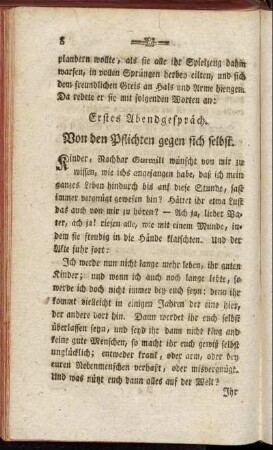 8
plaudern wollte, als sie alle ihr Spielzeig dahin
warfen, in vollen Sprüngen herbey eilten, und sich
dem freundlichen Greis an Hals und Arme hiengen.
Da redete er sie mit folgenden Worten an:
Erstes Abendgespräch.
Von den Pflichten gegen sich selbst.
Kinder, Nachbar Gutwill wünscht von mir zu
wissen, wie ichs angefangen habe, daß ich mein
ganzes Leben hindurch bis auf diese Stunde, fast
immer vergnügt gewesen bin? Hättet ihr etwa Lust
das auch von mir zu hören? — Ach ja, lieber Va-
ter, ach ja! riefen alle, wie mit einem Munde, in-
dem sie freudig in die Hände klatschten. Und der
Alte fuhr fort:
Ich werde nun nicht lange mehr leben, ihr guten
Kinder; und wenn ich auch noch lange lebte, so
werde ich doch nicht immer bey euch seyn: denn ihr
kommt vielleicht in einigen Jahren der eine hier,
der andere dort hin. Dann werdet ihr euch selbst
überlassen seyn, und seyd ihr dann nicht klug und
keine gute Menschen, so macht ihr euch gewiß selbst
unglücklich; entweder krank, oder arm, oder bey
euren Nebenmenschen verhaßt, oder misvergnügt.
Und was nützt euch dann alles auf der Welt?
Ihr